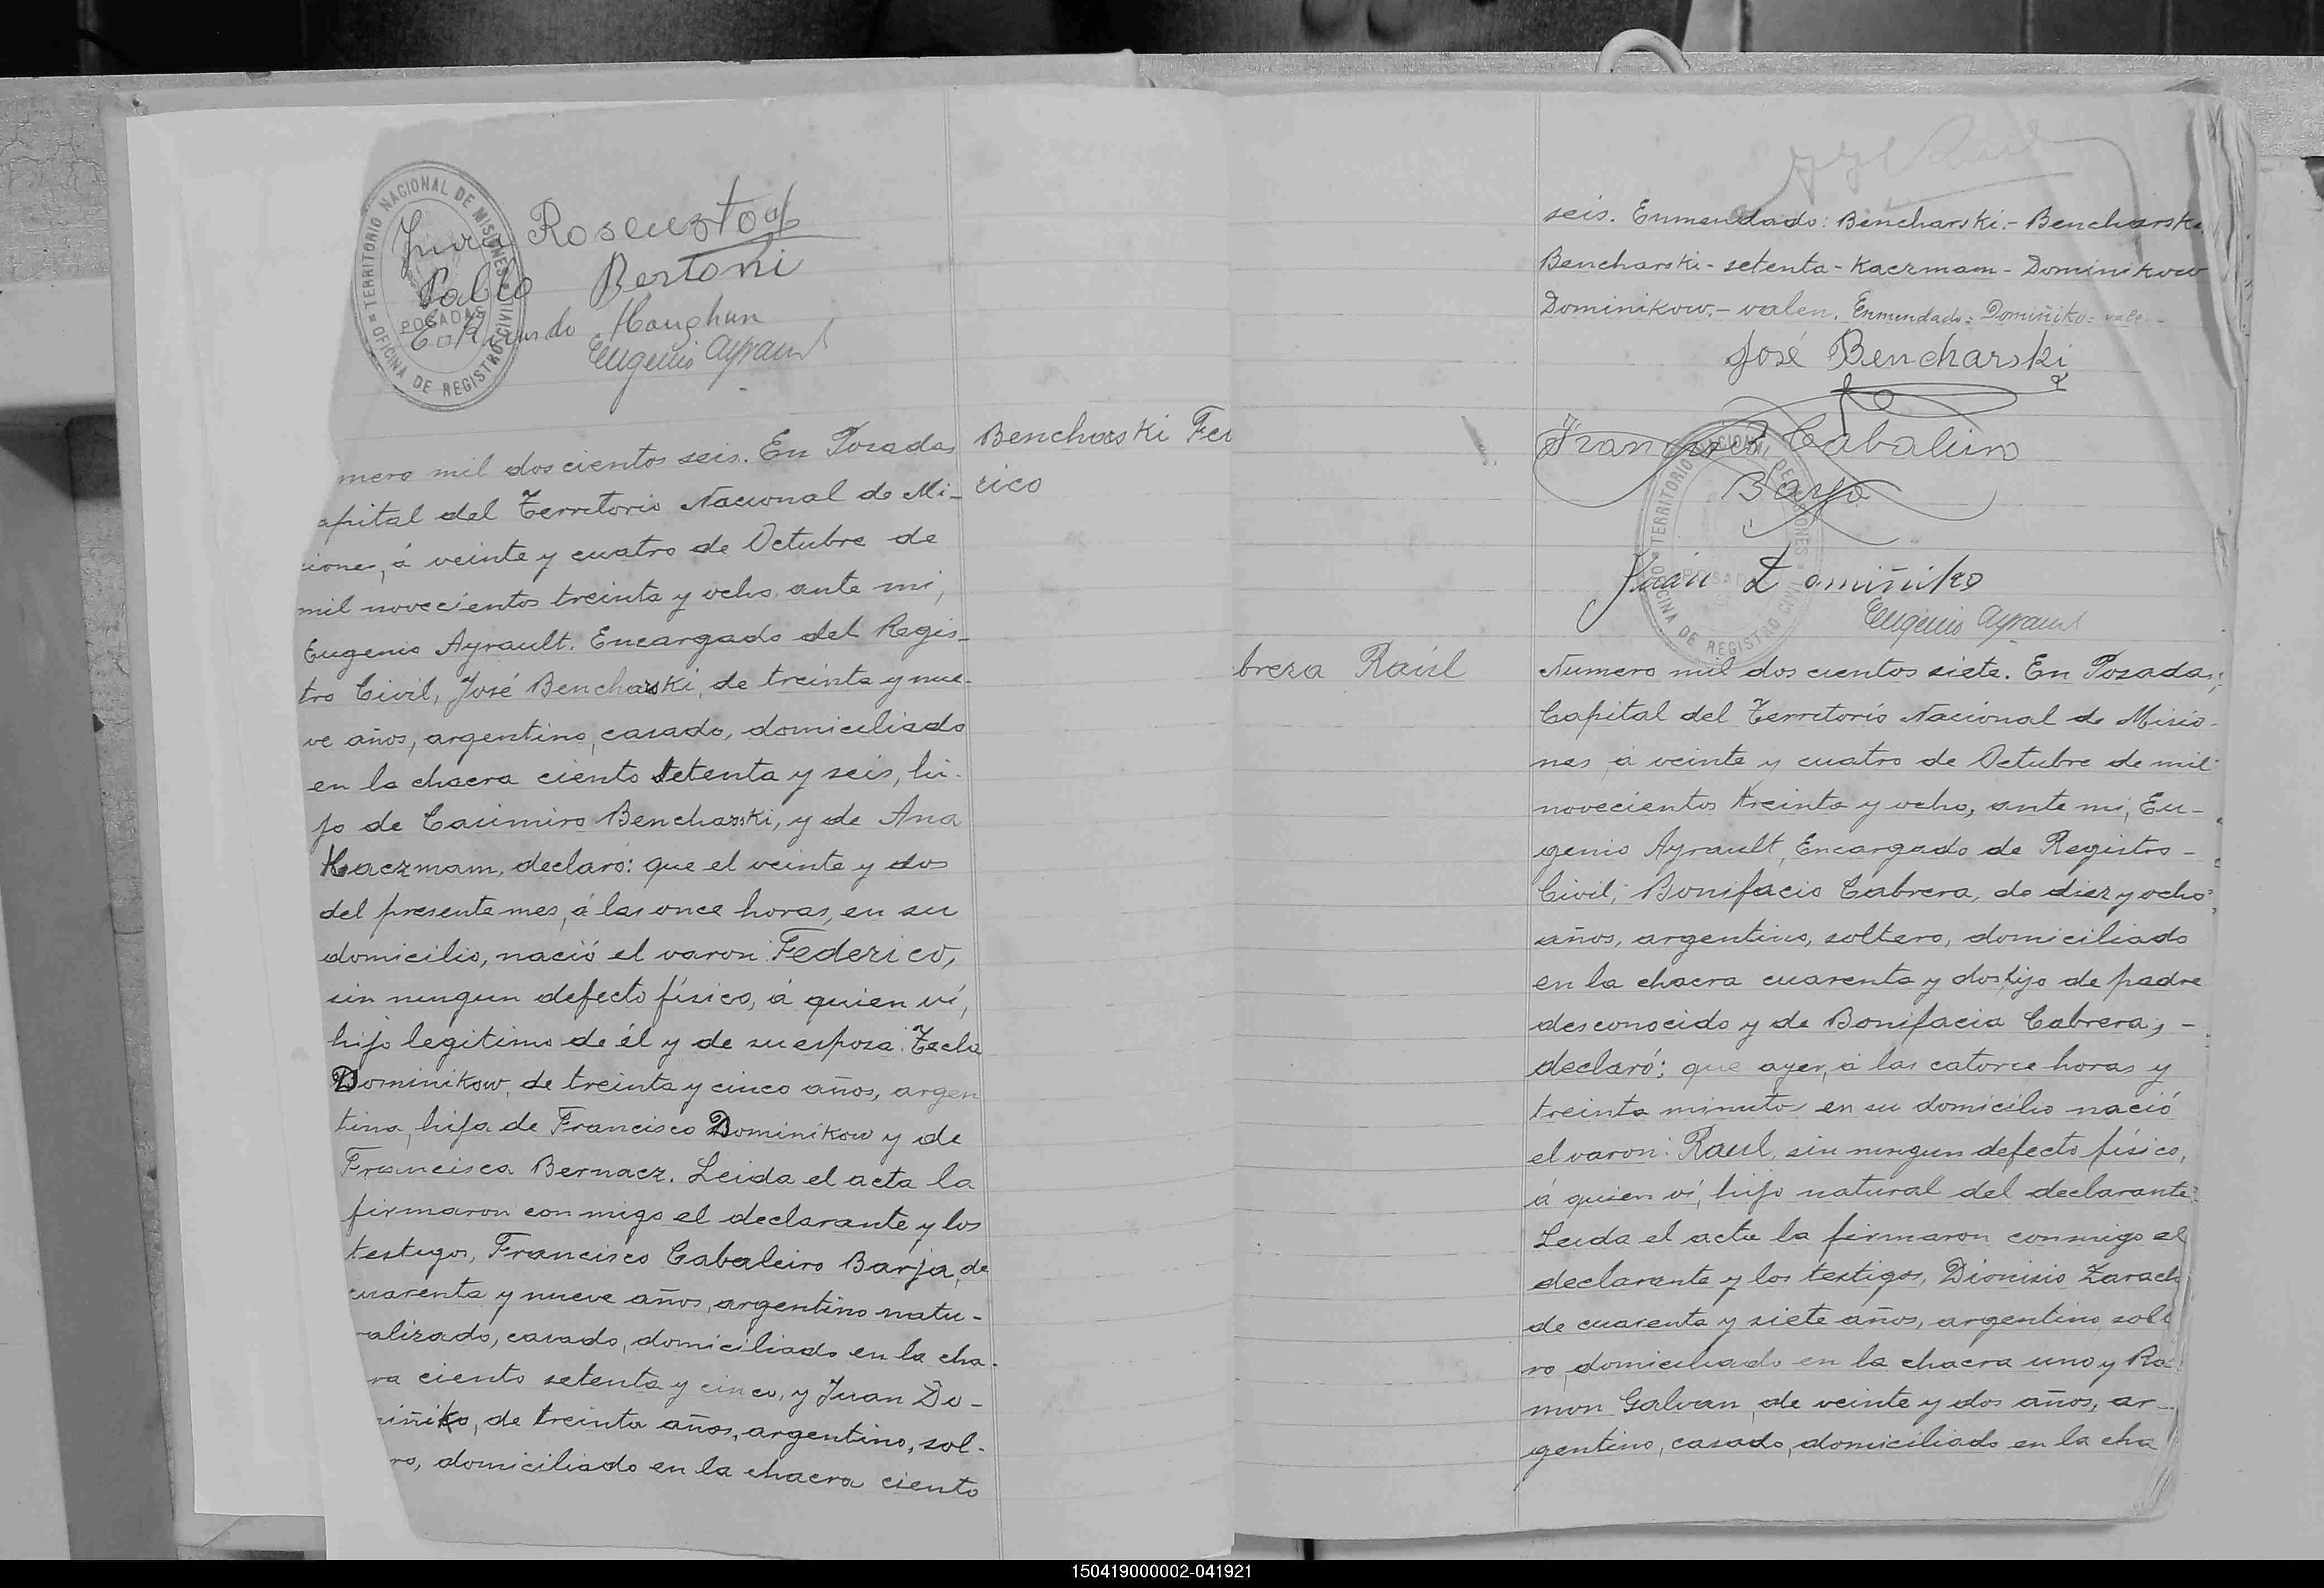 TERRITORIO NACIONAL DE MISIONES
OFICINA DE REGISTRO CIVIL
POSADAS
Pablo Bertoni
Eugenio Ayrault
mero mil doscientos seis. En Posadas
apital del Territorio Nacional de Mi-
iones, á veinte y cuatro de Octubre de
mil novecientos treinta y ocho, ante mi,
Eugenio Ayrault. Encargado del Regis-
tro Civil, José Bencharski, de treinta y nue-
ve años, argentino, casado, domiciliado
en la chacra ciento setenta y seis, hi-
jo de Casimiro Bencharski, y de Ana
Kaczmam, declaró: que el veinte y dos
del presente mes, á las once horas, en su
domicilio, nació el varon: Federico,
sin ningun defecto físico, á quien ví,
hijo legitimo de él y de su esposa: Tecla
Dominikow, de treinta y cinco años, argen
tina, hija de Francisco Dominikow y de
Francisca Bernacz. Leida el acta la
firmaron con migo el declarante y los
testigos, Francisco Cabaleiro Barja, de
cuarenta y nueve años, argentino natu-
ralizado, casado, domiciliado en la cha-
ra ciento setenta y cinco, y Juan Do-
iñiko, de treinta años, argentino, sol-
ro, domiciliado en la chacra ciento
Bencharski Fe
rico
seis. Enmendado: Bencharski.- Bencharski
Bencharski- setenta- Kaczmam- Dominikow
Dominikow.- valen. Enmendado: Domiñiko: vale.-
José Bencharski
Francisco Cabaleiro
Barja
TERRITORIO NACIONAL DE MISIONES
OFICINA DE REGISTRO CIVIL
POSADAS
Juan Domiñiko
Eugenio Ayrault
brera Raúl
Numero mil dos cientos siete. En Posadas,
Capital del Territorio Nacional de Misio-
nes á veinte y cuatro de Octubre de mil
novecientos treinta y ocho, ante mi, Eu-
genio Ayrault, Encargado de Registro-
Civil; Bonifacio Cabrera, de diez y ocho
años, argentino, soltero, domiciliado
en la chacra cuarenta y dos, hijo de padre
desconocido y de Bonifacia Cabrera, -
declaró: que ayer, á las catorce horas y
treinta minutos en su domicilio nació
el varon: Raul, sin ningun defecto físico,
á quien ví, hijo natural del declarante
Leida el acta la firmaron conmigo el
declarante y los testigos, Dionisio Zarach
de cuarenta y siete años, argentino, solt
ro, domiciliado en la chacra uno y Ra
mon Galvan, de veinte y dos años, ar-
gentino, casado, domiciliado en la cha
150419000002-041921